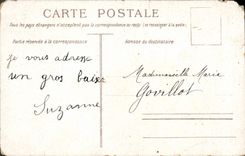 CARTE POSTALE
Tous les pays étrangers n'acceptent pas la correspondance au recto (se renseigner à la poste).
Partie réservée à la correspondance
Adresse du destinataire
je vous adresse
un gros baise
Suzanne
Mademoiselle Marie
Govillot